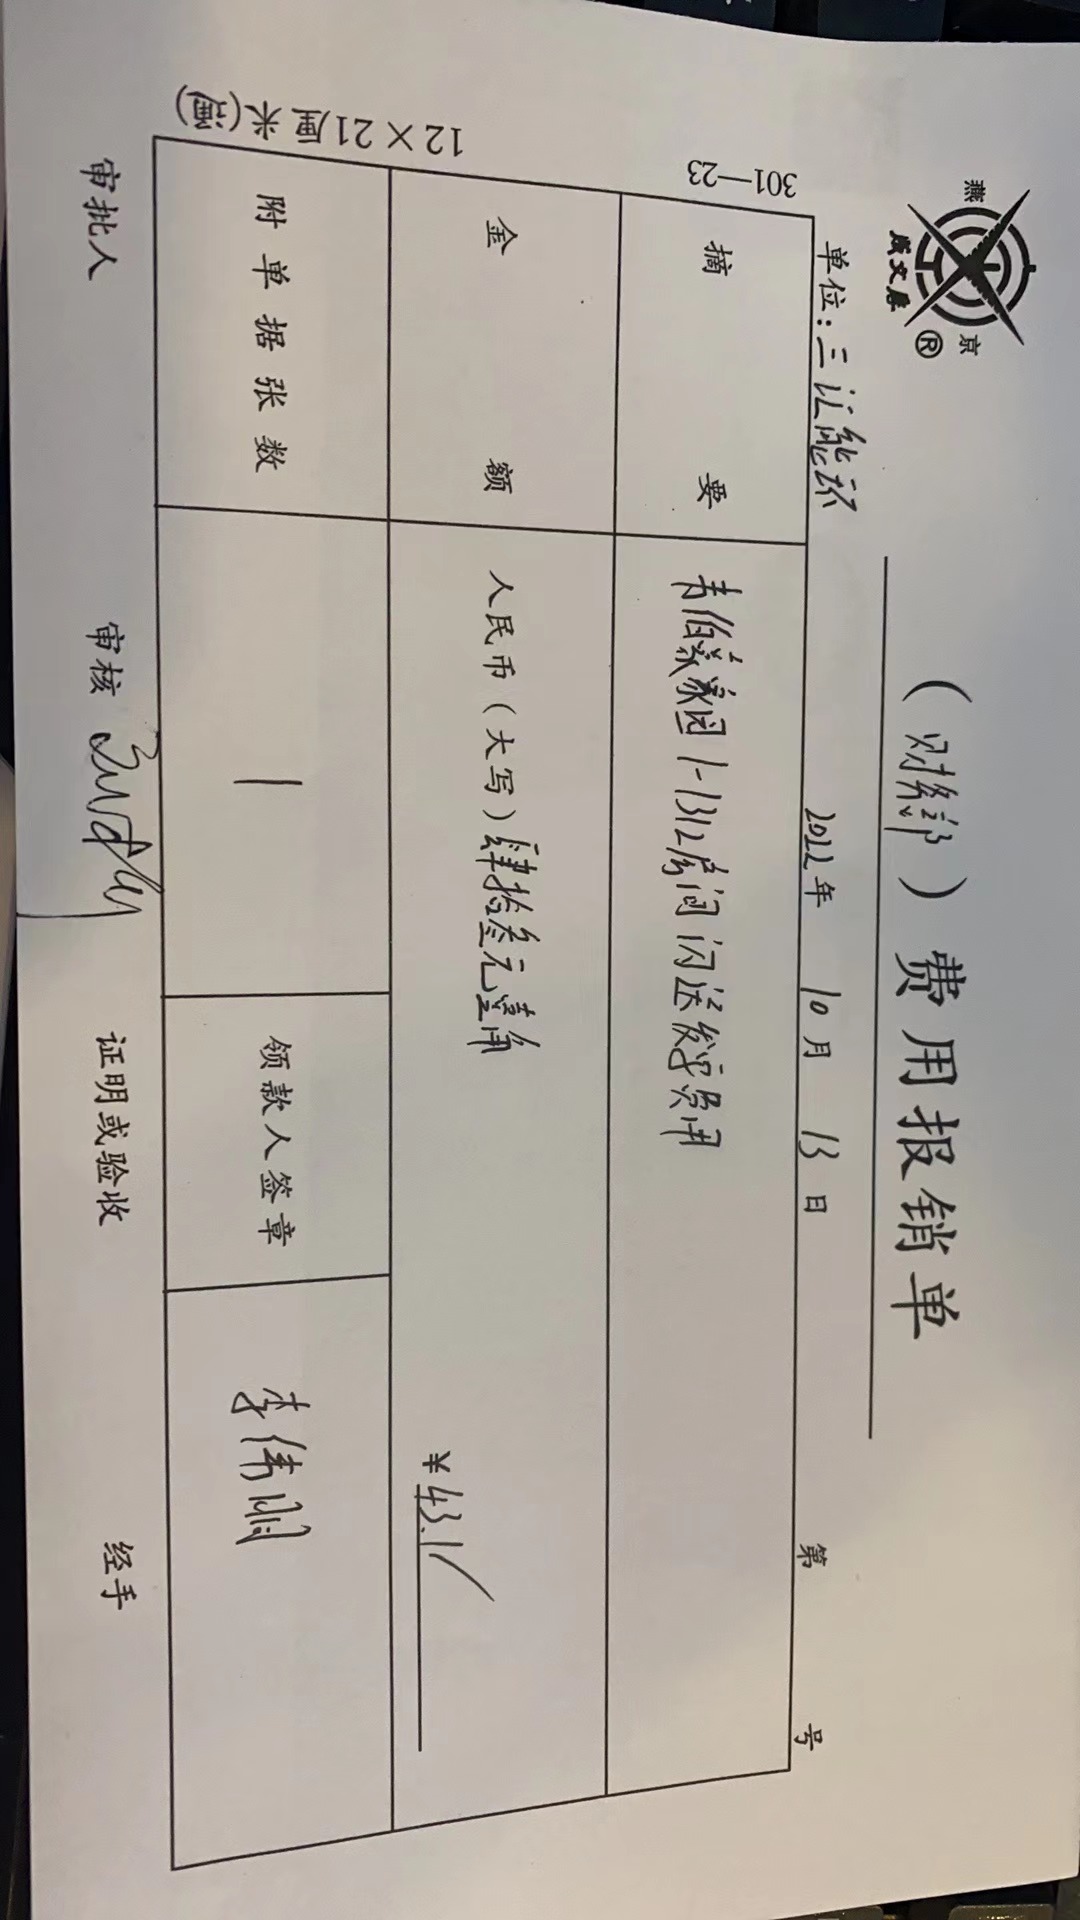 燕 京
成文厚
®
(财务部)费用报销单
301—23
单位:三让能环 2022年 10月 13日 第 号
摘 要 青伯義家园1-1312房间闪送发票费用
金 额 人民币(大写)肆拾叁元壹角
¥43.1
附单据张数 1 领款人签章 李伟刚
审批人 审核 证明或验收 经手
12×21厘米(通)